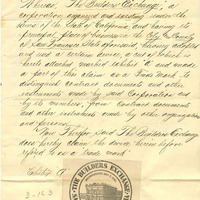 Whereas, The Builders Exchange, a
corporation, organized and existing under the
laws of the State of California and having its
principal place of business in the City & County
of San Francisco State aforesaid, having adopted
and uses a certain device, a cut of which is
hereto attached marked exhibit "A" and made
a part of this claim as a Trade Mark to
distinguish contract documents and other
instruments made by said Corporation and
by its members, from contract documents
and other instruments made by other organizations
and persons.
Now Therefor said The Builders Exchange
does hereby claim the device herein before
refered to as a Trade mark.
Exhibit A.
THE BUILDERS EXCHANGE